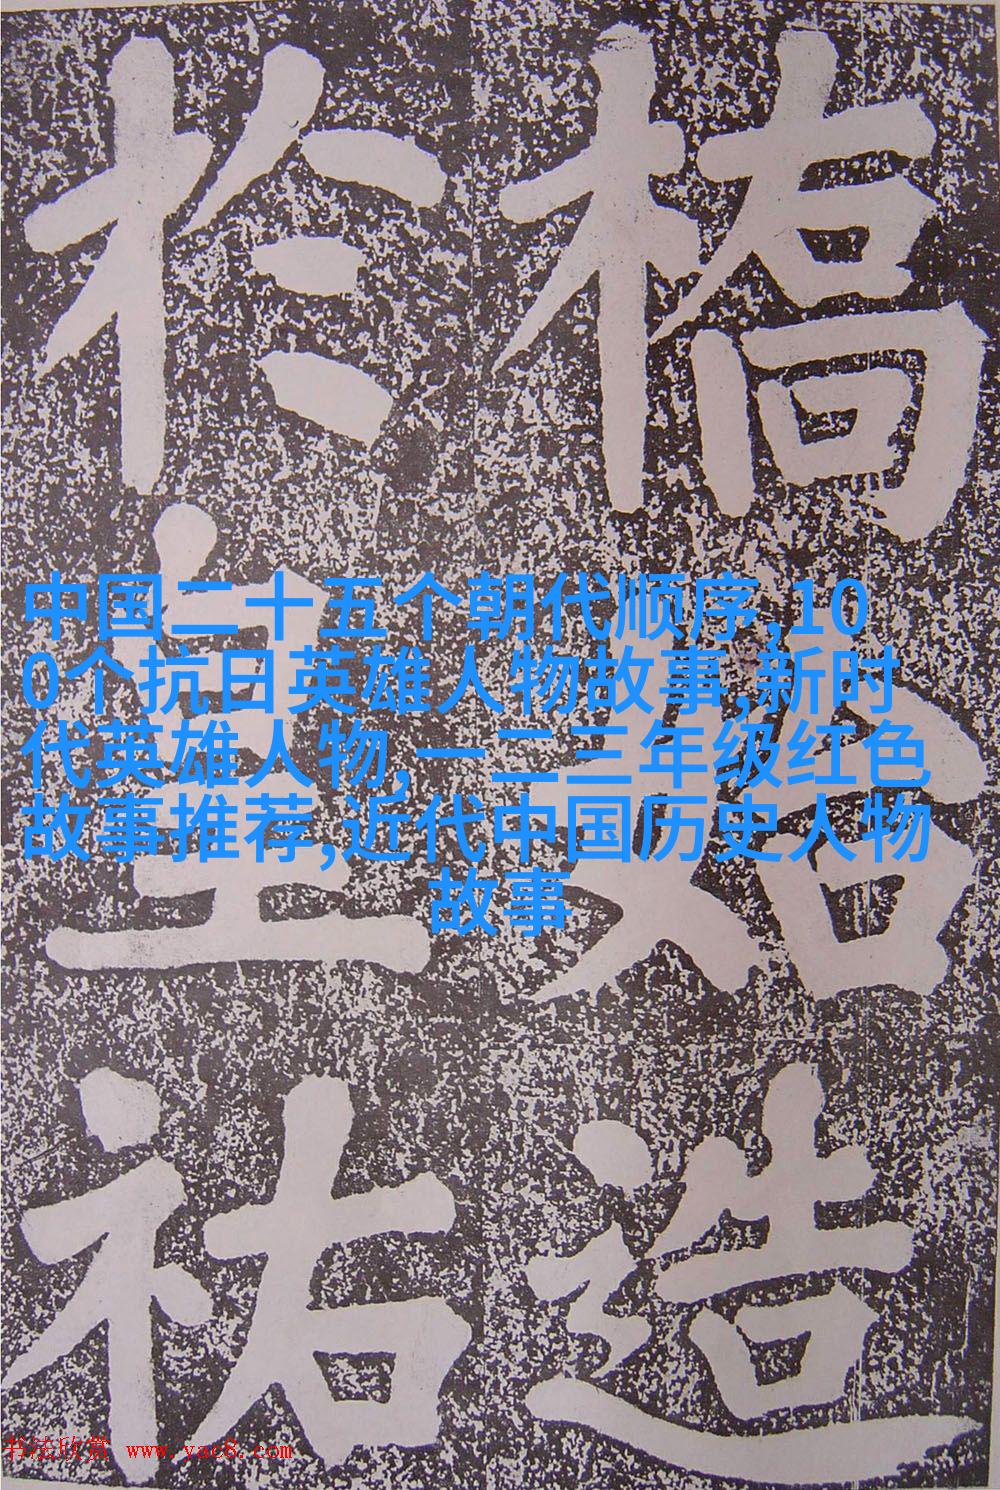 橋始造
於皇祐
中国二十五个朝代顺序,10
0个抗日英雄人物故事,新时
代英雄人物,一二三年级红色
故事推荐,近代中国历史人物
故事
书法欣赏 www.yac8.com